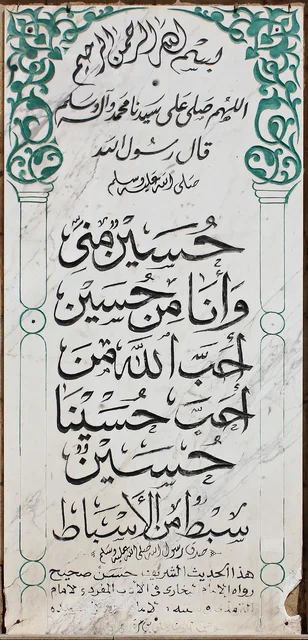 بسم الله الرحمن الرحيم
اللهم صلي على سيدنا محمد وآله وسلم
قال رسول الله
صلى الله عليه وسلم
حُسَيْنٌ مِنِّي
وَأَنَا مِنْ حُسَيْن
أَحَبَّ اللهُ مَنْ
أَحَبَّ حُسَيْنًا
حُسَيْنٌ
سِبْطٌ مِنَ الأَسْبَاط
صدق رسول الله صلى الله عليه وسلم
هذا الحديث الشريف حسن صحيح
رواه الإمام البخاري في الأدب المفرد والإمام